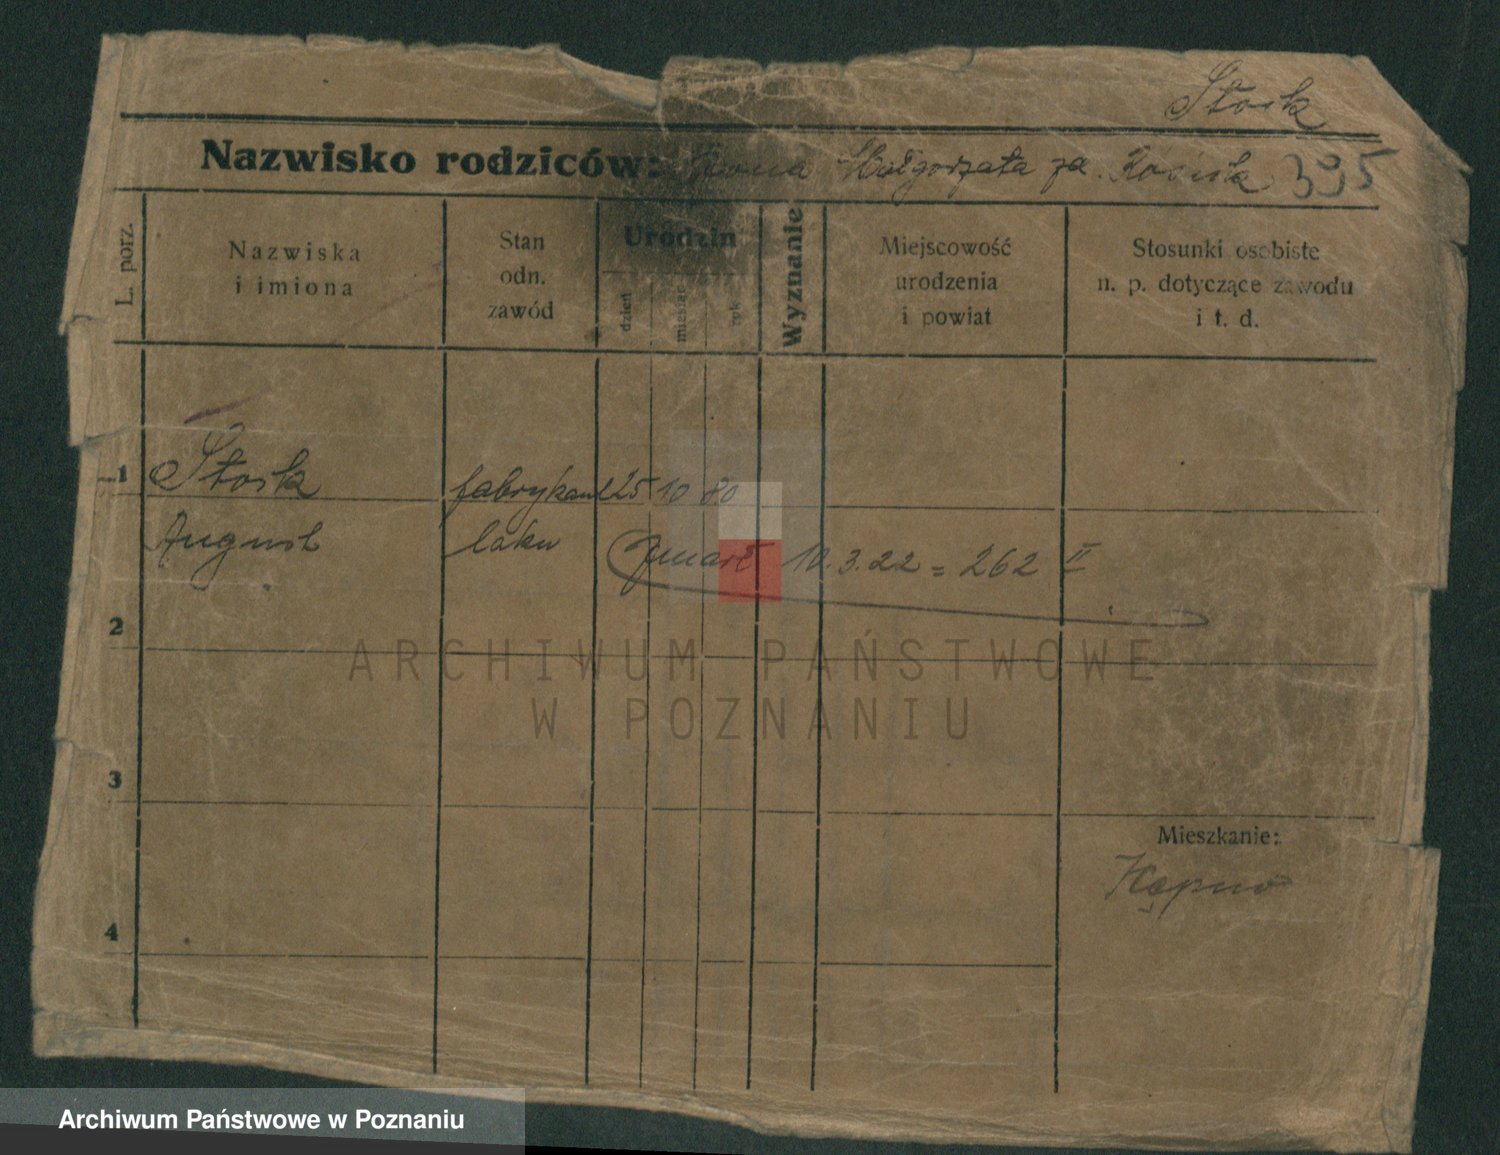 Stock
Nazwisko rodziców: Żona Małgorzata za. 395
L. porz.
Nazwiska i imiona
Stan odn. zawód
Urodzin
dzień
miesiąc
rok
Wyznanie
Miejscowość urodzenia i powiat
Stosunki osobiste n. p. dotyczące zawodu i t. d.
1 Stock fabrykant 25 10 80
August laku zmarł 10.3.22 = 262 II
2
ARCHIWUM PAŃSTWOWE
W POZNANIU
3
Mieszkanie:
Kępno
4
Archiwum Państwowe w Poznaniu